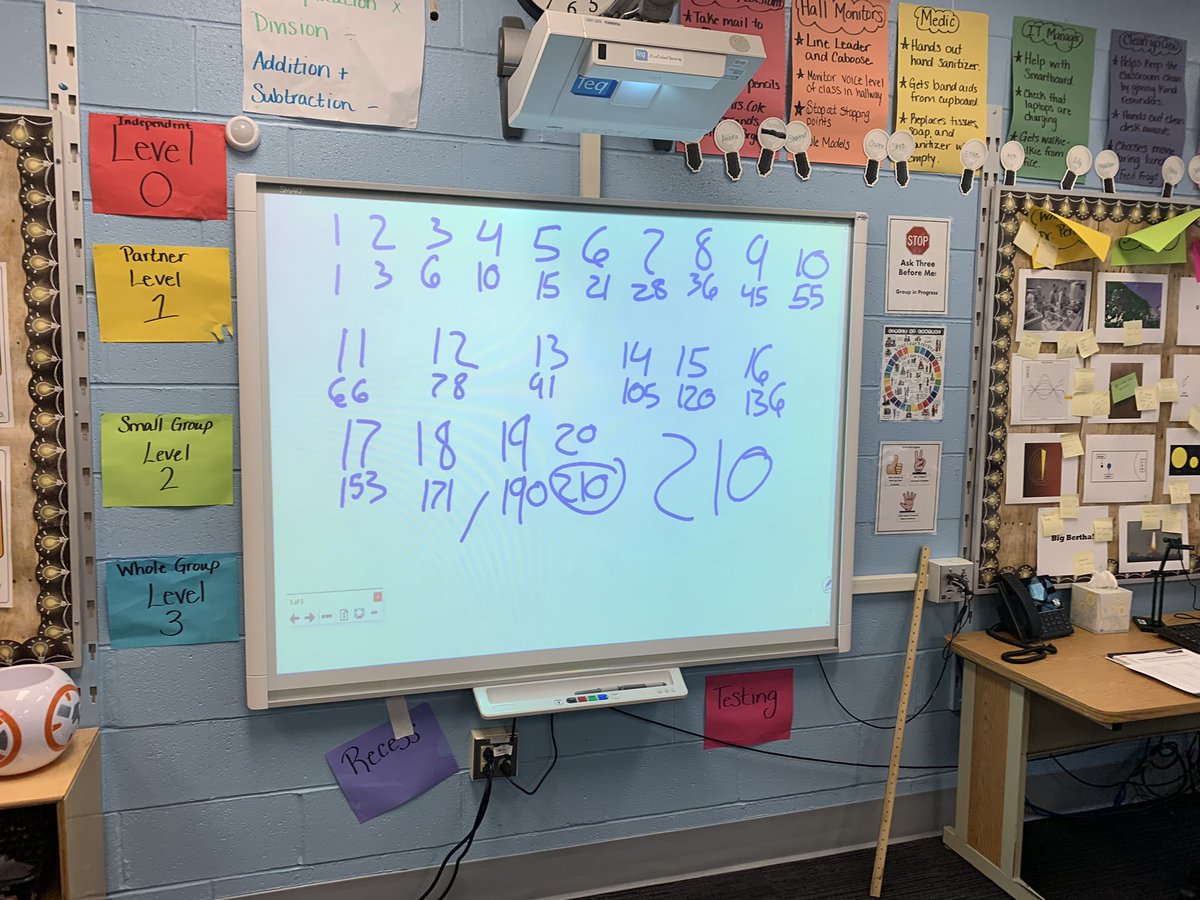 Division -
Addition +
Subtraction -
Independent
Level
0
Partner
Level
1
Small Group
Level
2
Whole Group
Level
3
Teq
1 2 3 4 5 6 7 8 9 10
1 3 6 10 15 21 28 36 45 55
11 12 13 14 15 16
66 78 91 105 120 136
17 18 19 20
153 171, 190 210 210
3 of 3
Recess
Testing
★ Take mail to
Hall Monitors
★ Line Leader
and Caboose
★ Monitor voice level
of class in hallway
★ Stop at stopping
points
Models
Medic
★ Hands out
hand sanitizer.
★ Gets band aids
from cupboard.
★ Replaces tissues,
soap, and
empty.
IT Manager
★ Help with
Smartboard
★ Check that
laptops are
charging
★ Gets walkie-
from
Clean up Crew
★ Helps keep the
classroom clean
by giving kind
reminders.
★ Hands out clean
desk awards.
★ Chooses movie
lunch
STOP
Ask Three
Before Me!
Group in Progress
Big Bertha!